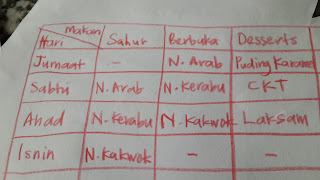 Makan
Hari Sahur Berbuka Desserts
Jumaat - N. Arab Puding Karamel
Sabtu N. Arab N. Kerabu CKT
Ahad N. Kerabu N. Kakwok Laksam
Isnin N. Kakwok - -